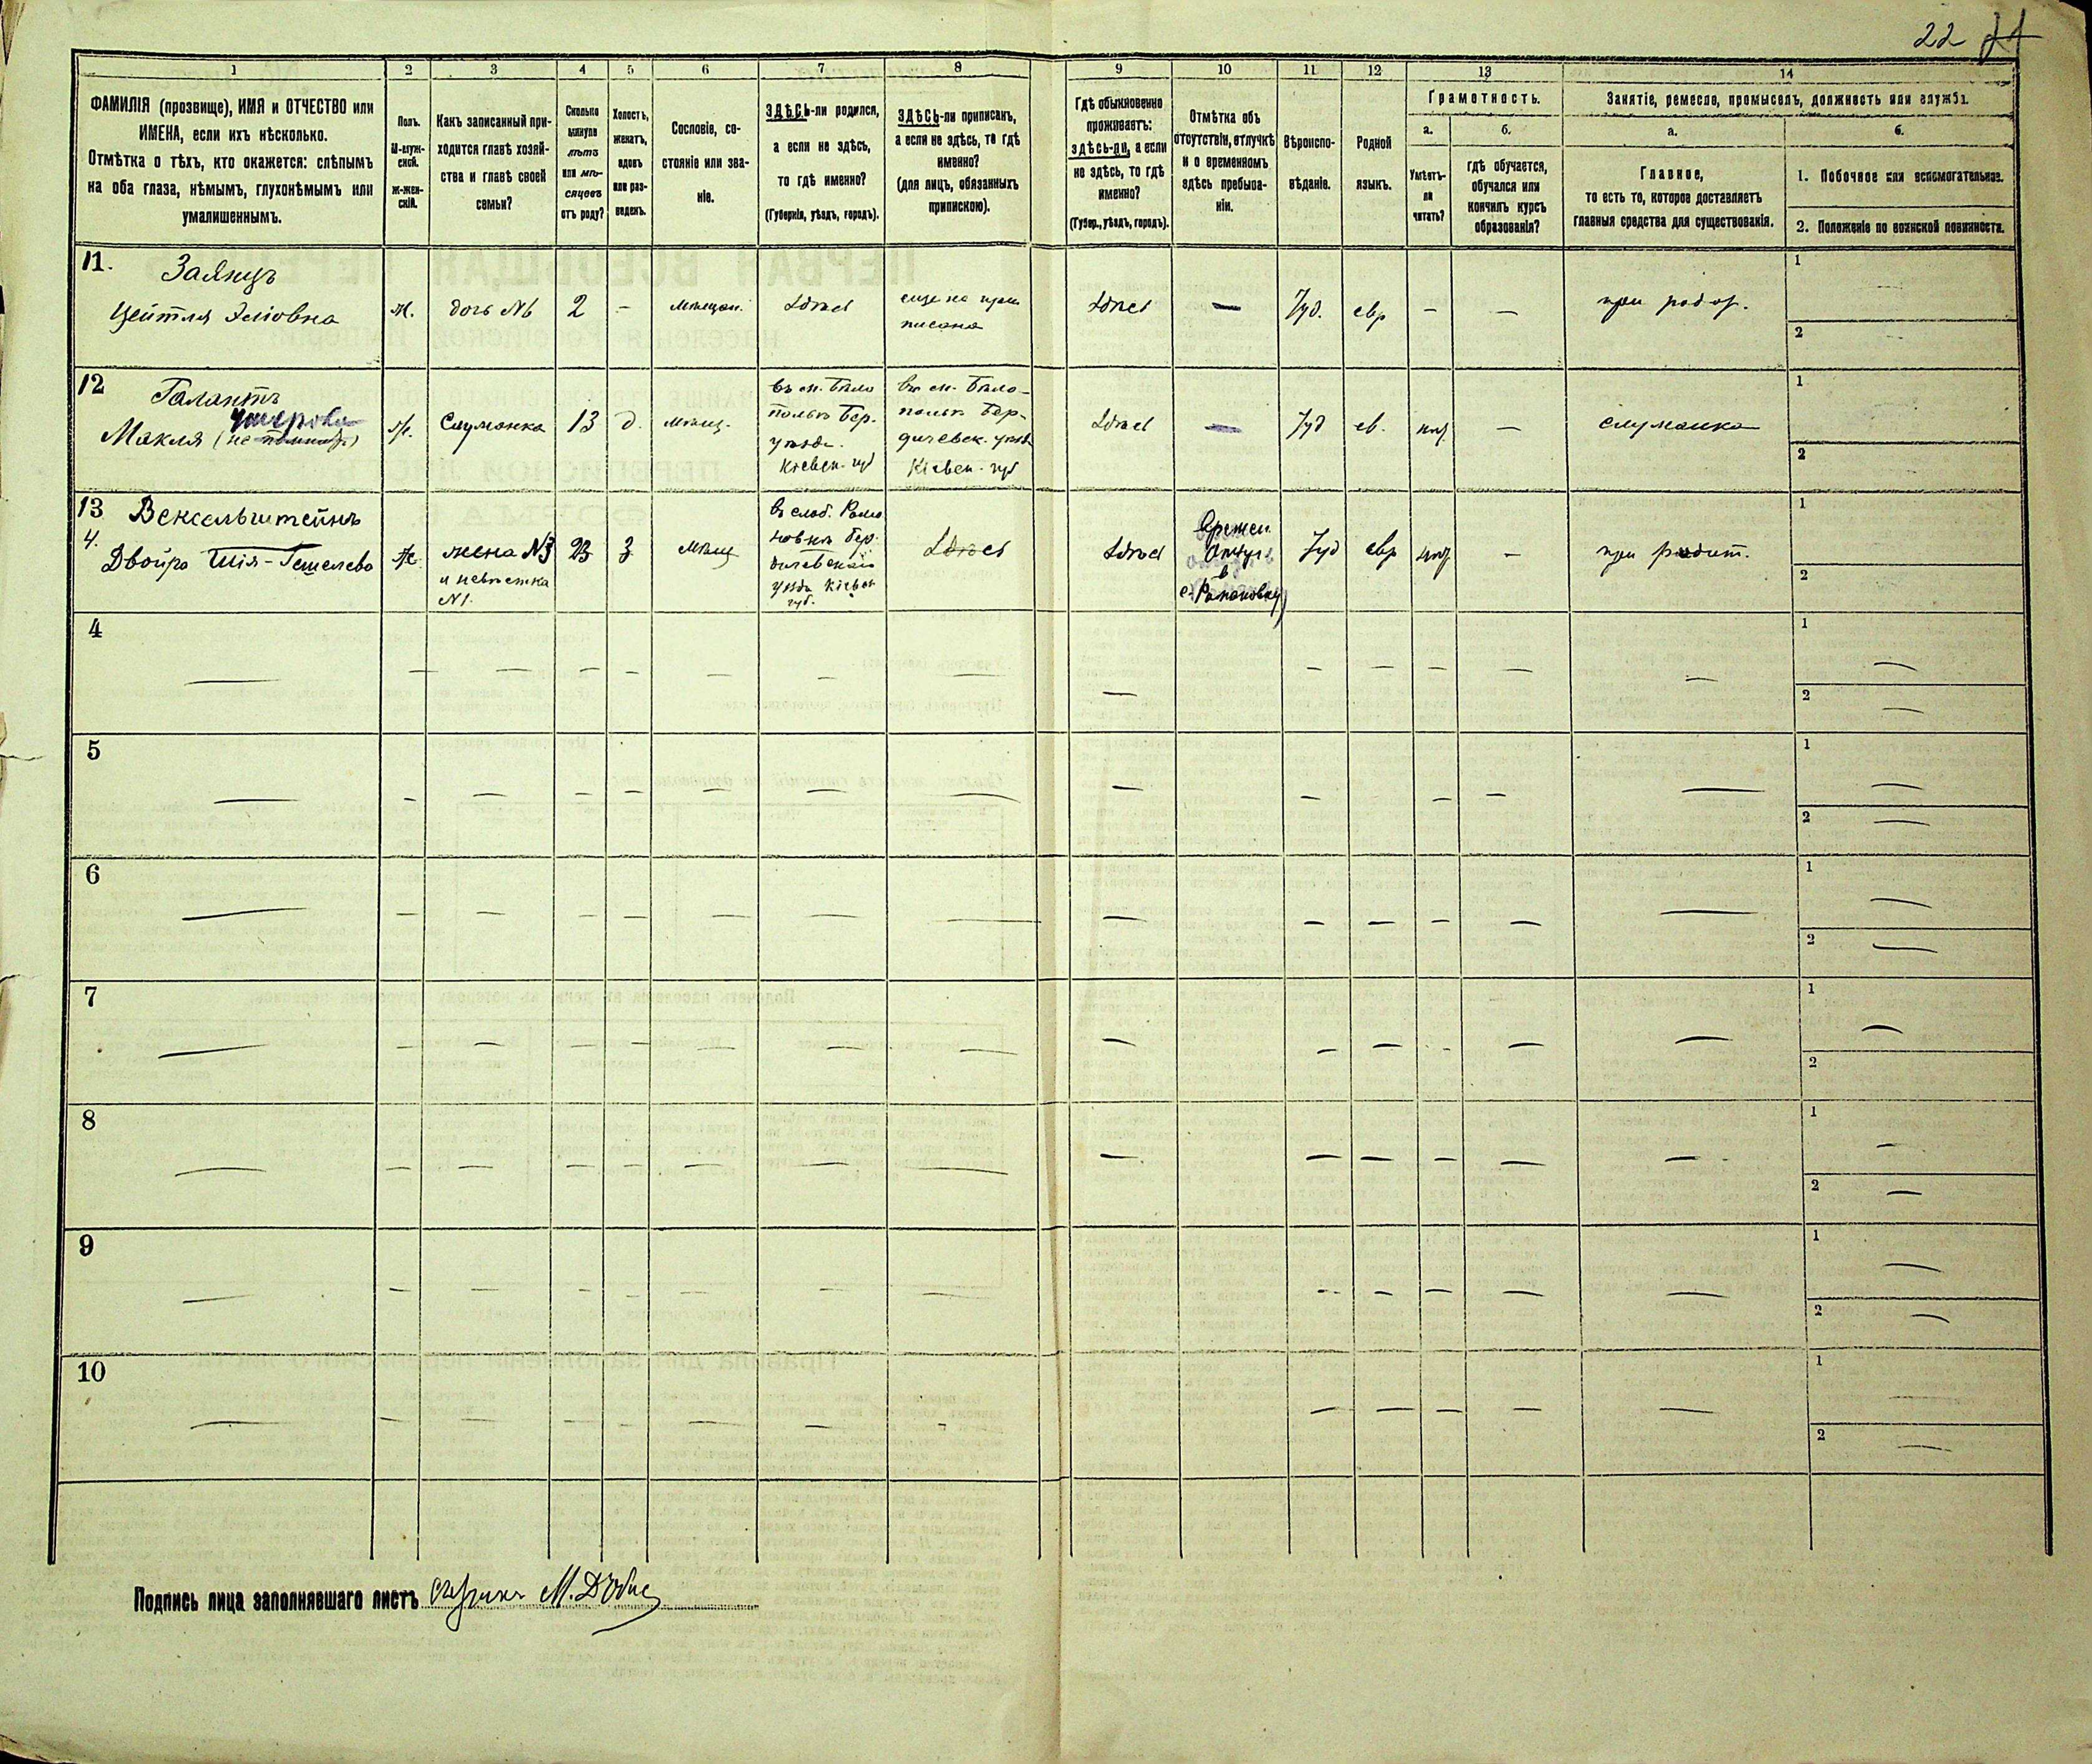 22
1 2 3 4 5 6 7 8 9 10 11 12 13 14
ФАМИЛІЯ (прозвище), ИМЯ и ОТЧЕСТВО или
ИМЕНА, если ихъ нѣсколько.
Отмѣтка о тѣхъ, кто окажется: слѣпымъ
на оба глаза, нѣмымъ, глухонѣмымъ или
умалишеннымъ.
Полъ.
М-муж-
ской.
ж-жен-
скій.
Какъ записанный при-
ходится главѣ хозяй-
ства и главѣ своей
семьи?
Сколько
минуло
лѣтъ
или мѣ-
сяцевъ
отъ роду?
Холостъ,
женатъ,
вдовъ
или раз-
веденъ.
Сословіе, со-
стояніе или зва-
ніе.
ЗДѢСЬ-ли родился,
а если не здѣсь,
то гдѣ именно?
(Губернія, уѣздъ, городъ).
ЗДѢСЬ-ли приписанъ,
а если не здѣсь, то гдѣ
именно?
(для лицъ, обязанныхъ
припискою).
Гдѣ обыкновенно
проживаетъ:
здѣсь-ли, а если
не здѣсь, то гдѣ
именно?
(Губер., уѣздъ, городъ).
Отмѣтка объ
отсутствіи, отлучкѣ
и о временномъ
здѣсь пребыва-
ніи.
Вѣроиспо-
вѣданіе.
Родной
языкъ.
Грамотность.
а.
Умѣетъ-
ли
читать?
б.
гдѣ обучается,
обучался или
кончилъ курсъ
образованія?
Занятіе, ремесло, промыселъ, должность или служба.
а.
Главное,
то есть то, которое доставляетъ
главныя средства для существованія.
б.
1. Побочное или вспомогательное.
2. Положеніе по воинской повинности.
11.
Заянцъ
Цейтля Эліовна
ж.
дочь №6
2
–
мѣщан.
Здѣсь
еще не при
писана
Здѣсь
—
Іуд.
евр
–
—
при род
1
2
12
Галантъ
Макля (не помнитъ)
ж.
Служанка
13
д.
мѣщ.
въ м. Бѣло
полье Бер.
уѣзд.
Кіевск. губ
въ м. Бѣло-
полье Бер-
дичевск. уѣзд
Кіевск. губ
Здѣсь
—
Іуд
ев.
—
служанка
1
2
13
4.
Вексельштейнъ
Двойра Шія-Гешелева
ж
жена №3
и невѣстка
№1.
23
з.
мѣщ
въ слоб. Рома
новкѣ Бер.
дичевскаго
уѣзда Кіевск
губ.
Здѣсь
Здѣсь
Времен.
Отлуч.
в
с. Романовку
Іуд
евр
—
при родит.
1
2
4
1
2
5
1
2
6
1
2
7
1
2
8
1
2
9
1
2
10
1
2
Подпись лица заполнявшаго листъ